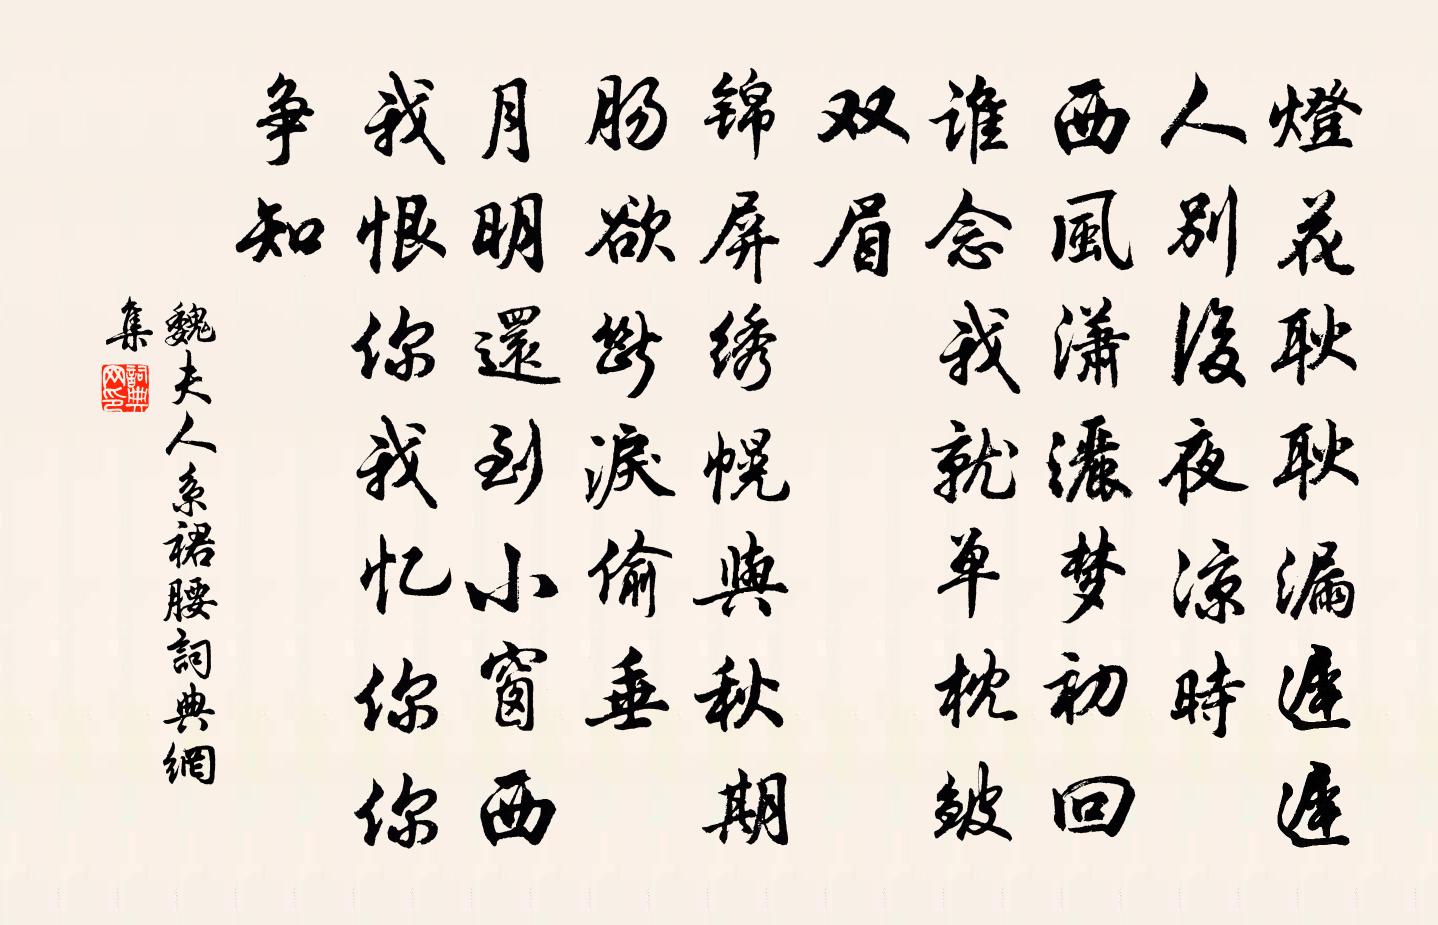 燈花耿耿漏遲遲
人别後夜凉時
西風瀟灑梦初回
谁念我就单枕皱
双眉
锦屏绣幌與秋期
肠欲断淚偷垂
月明還到小窗西
我恨你我忆你你
争知
魏夫人系裙腰詞典網
集
詞典
网印